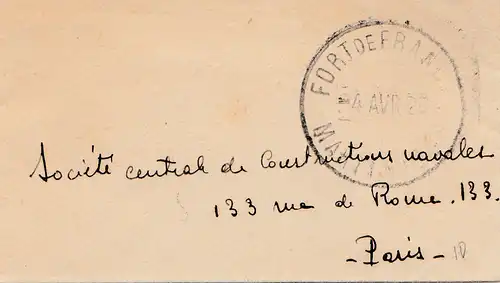 FORT DE FRANCE
4 AVR 25
MARTINIQUE
Société central de Constructions navales
133 rue de Rome. 133.
- Paris -